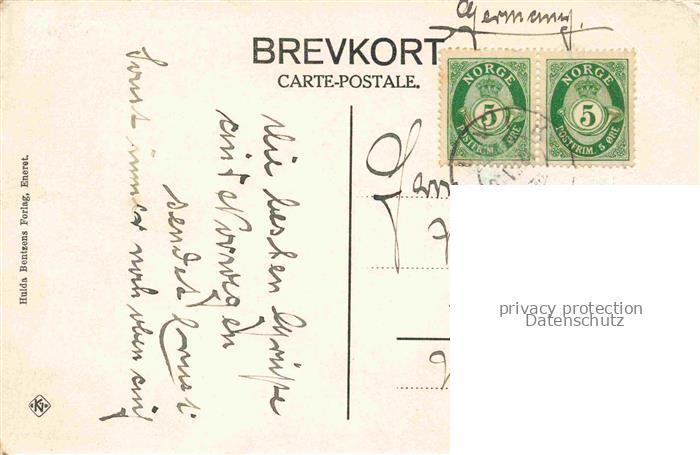 Germany.
BREVKORT
CARTE-POSTALE.
NORGE
5
POSTFRIM. 5 ØRE
NORGE
5
POSTFRIM. 5 ØRE
Die besten Grüße
aus Norwegen
sendet Ernst
Sonst immer noch oben auf
Hulda Bentzens Forlag, Eneret.
privacy protection
Datenschutz